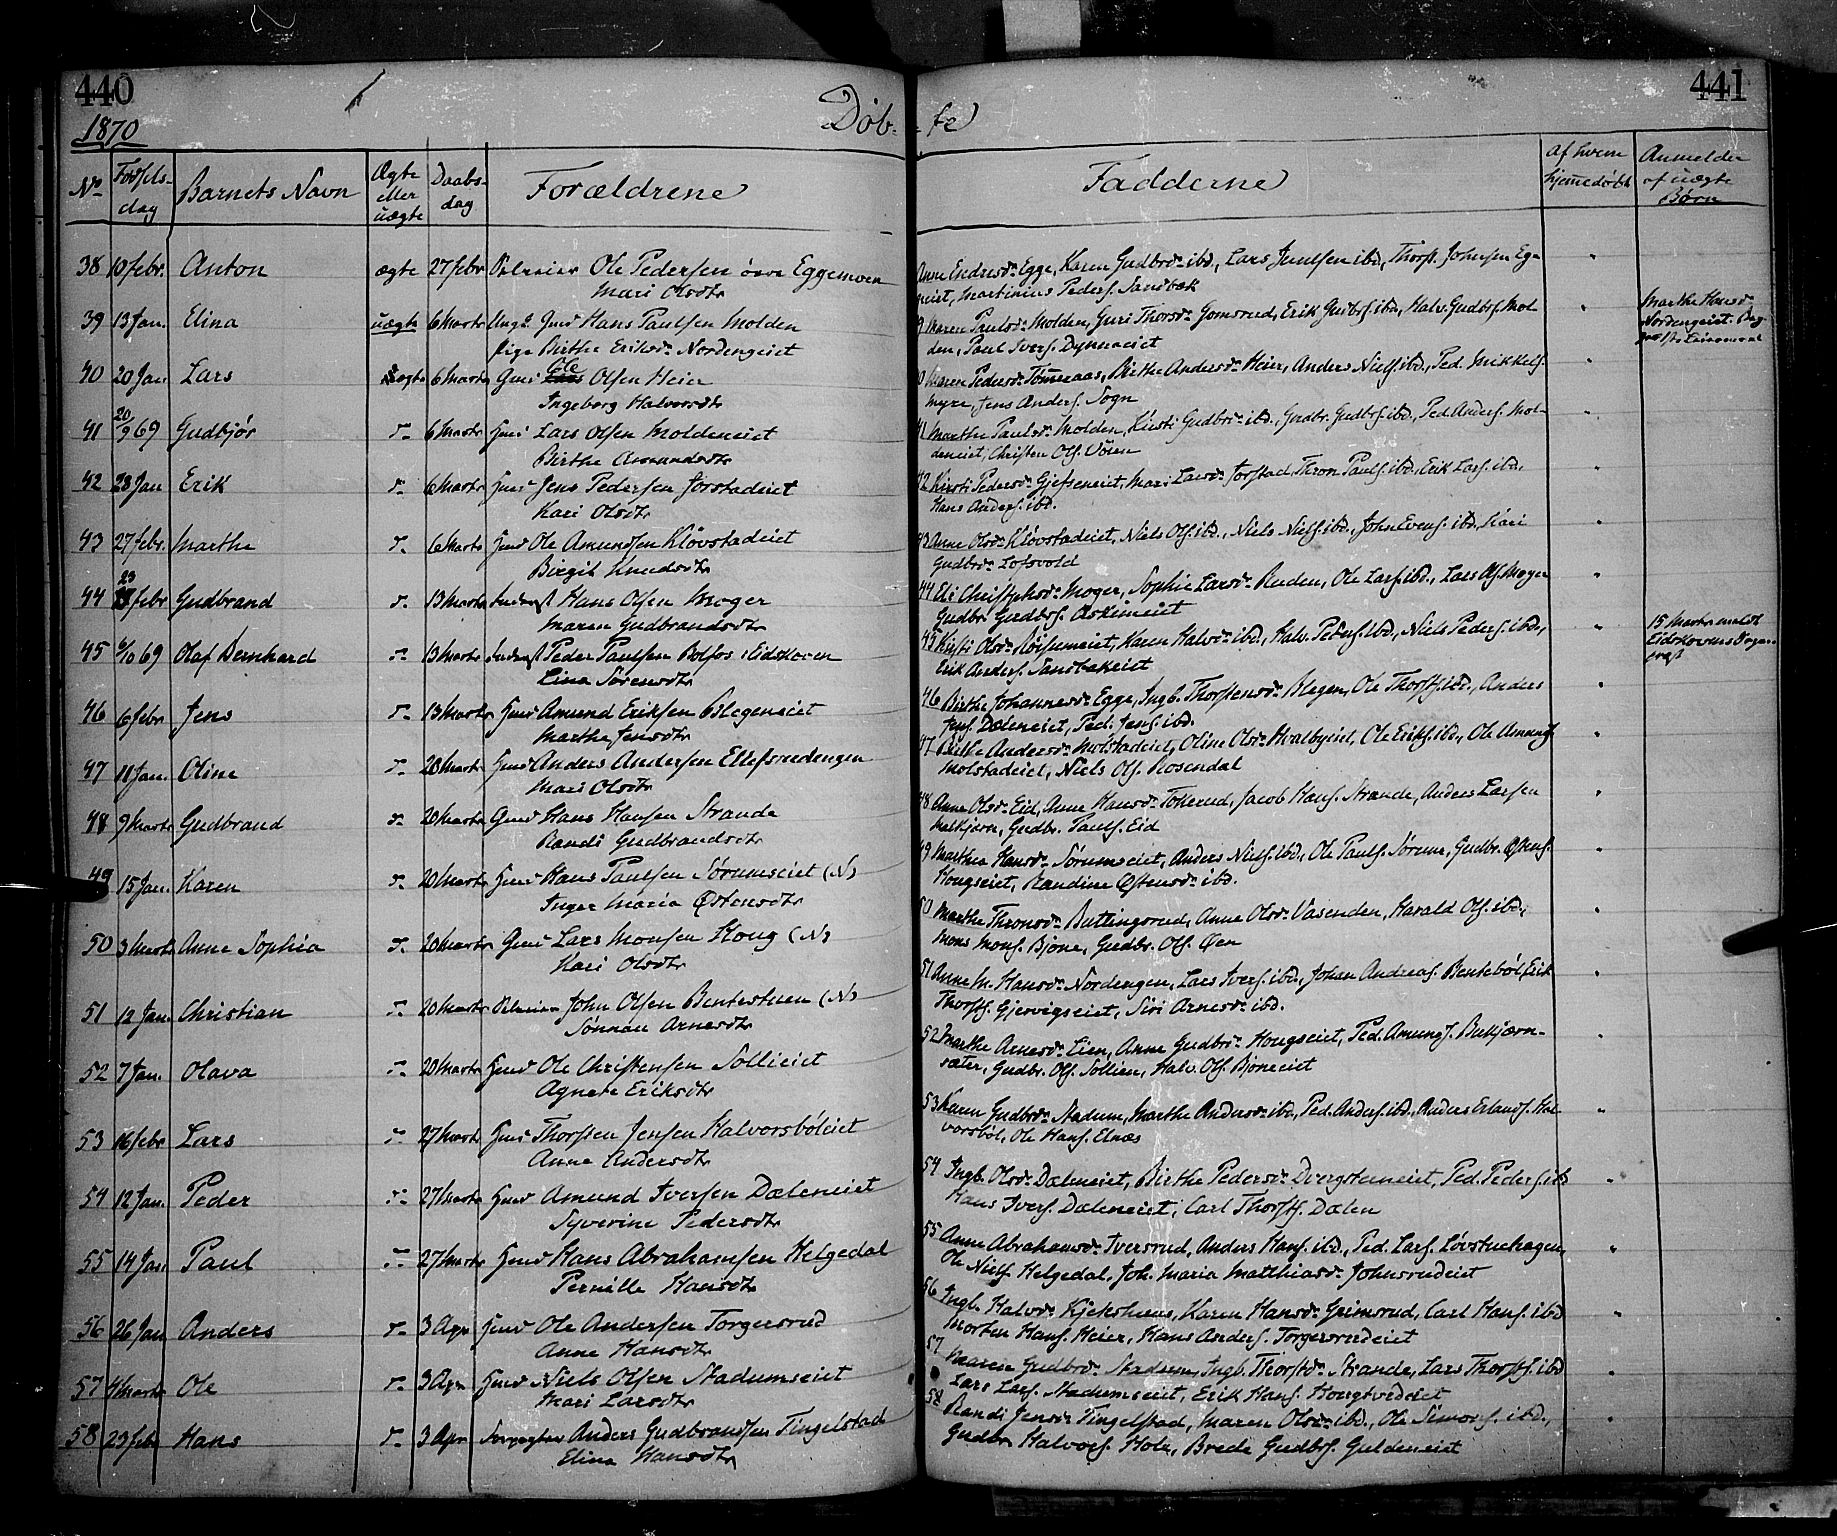 440
441
1870
Døb-
te
No
Fødsels-
dag
Barnets Navn
Ægte
eller
uægte
Daabs-
dag
Forældrene
Fadderne
Af hvem
hjemedøbt
Anmelder
af uægte
Børn
38 10 febr. Anton ægte 27 febr Ole Pedersen øvre Eggemoen
Mari Olsdtr
Anne Endresdr Egge, Karen Gudbrdr ibd., Lars Juulsen ibd., Thorst. Johnsen Eg-
eiet, Martinius Peders. Sandbæk
39 13 Jan. Elina uægte 6 Marts Ungk. Hans Paulsen Molden
Pige Birthe Eriksdr Nordengeiet
Maren Paulsdr Molden, Guri Thorsdr Gomsrud, Erik Gudbrs. ibd., Halv. Gudbrs. Mol-
den, Paul Ivers. Dynneeiet
Marthe Hansdr
Nordengeiet
40 20 Jan. Lars ægte 6 Marts Gmd Ole Olsen Heier
Ingeborg Halvorsdtr
Maren Pedersdr Tømmeraas, Birthe Andersdr Heier, Anders Niels. ibd., Ped. Mikkels.
Myre, Jens Anders. Sogn
41 20/9 69 Gudbjør 6 Marts Lars Olsen Moldeneiet
Birthe Amundsdtr
41 Marthe Paulsdr Molden, Kirsti Gudbrdr ibd., Gudbr. Gudbrs. ibd., Ped. Anders. Mol-
deneiet, Christen Ols. Vøien
42 28 Jan Erik 6 Marts Jens Pedersen Jorstadeiet
Kari Olsdtr
42 Kirsti Pedersdr Gjefseneiet, Mari Larsdr Jorstad, Thron Pauls. ibd., Erik Lars. ibd.
Hans Anders. ibd.
43 27 febr. Marthe 6 Marts Ole Amundsen Kløvstadeiet
Birgit Knudsdtr
43 Anne Olsdr Kløvstadeiet, Niels Ols. ibd., Niels Niels. ibd., John Evens. ibd., Kari
Gudbrdr Lofsvold
44 23 febr Gudbrand 13 Marts Hans Olsen Moger
Maren Gudbrandsdtr
44 Eli Christophsdr Moger, Sophie Larsdr Ruden, Ole Lars. ibd., Lars Ols. Moger
Gudbr. Gudbrs. Askimeiet
45 6/10 69 Olaf Bernhard 13 Marts Peder Paulsen Bolfos i Eidskoven
Lina Sørensdtr
45 Kirsti Olsdr Røisumeiet, Karen Halvdr ibd., Halv. Peders. ibd., Niels Peders. ibd.,
Erik Anders. Sandbakeiet
15 Marts meldt
Eidskovens Sogne-
præst
46 6 febr Jens 13 Marts Amund Eriksen Blegeneiet
Marthe Jensdtr
46 Birthe Johannesdr Egge, Ingb. Thorstensdr Blegen, Ole Thorsts. ibd., Anders
Jens. Dæleneiet, Ped. Jens. ibd.
47 11 Jan. Oline 20 Marts Anders Andersen Ellefsrudengen
Mari Olsdtr
47 Birthe Andersdr Molstadeiet, Oline Olsdr Hvalbyeiet, Ole Eriks. ibd., Ole Amunds.
Molstadeiet, Niels Ols. Rosendal
48 9 Marts Gudbrand 20 Marts Gmd Hans Hansen Strande
Randi Gudbrandsdtr
48 Anne Olsdr Eid, Anne Hansdr Tokerud, Jacob Hans. Strande, Anders Larsen
Melkjorn, Gudbr. Pauls. Eid
49 15 Jan. Karen 20 Marts Hans Paulsen Sørumseiet (N)
Inger Maria Østensdtr
49 Marthea Hansdr Sørumseiet, Anders Niels. ibd., Ole Pauls. Sørum, Gudbr. Østens.
Hougseiet, Randine Østensdr ibd.
50 3 Marts Anne Sophia 20 Marts Gmd Lars Monsen Houg (N)
Kari Olsdtr
50 Marthe Thronsdr Buttingsrud, Anne Olsdr Vasenden, Harald Ols. ibd.,
Mons Mons. Bjone, Gudbr. Ols. Øen
51 12 Jan. Christian 20 Marts John Olsen Bentestuen (N)
Sønnau Arnesdtr
51 Anne M. Hansdr Nordengen, Lars Ivers. ibd., Johan Andreas. Bentebøl, Erik
Thorsts. Gjervigseiet, Siri Arnesdr ibd.
52 7 Jan. Olava 20 Marts Ole Christensen Sollieiet
Agnete Eriksdtr
52 Marthe Arnesdr Lien, Anne Gudbrdr Hougseiet, Ped. Amunds. Bukjærn-
sæter, Gudbr. Ols. Sollien, Halv. Ols. Bjoneeiet
53 16 febr Lars 27 Marts Thorsten Jensen Halvorsbøleiet
Anne Andersdtr
53 Karen Gudbrdr Stadum, Marthe Andersdr ibd., Ped. Anders. ibd., Anders Erlands. Hal-
vorsbøl, Ole Hans. Elnæs
54 12 Jan. Peder 27 Marts Amund Iversen Dæleneiet
Syverine Pedersdtr
54 Ingb. Olsdr Dæleneiet, Birthe Pedersdr Dvergsteneiet, Ped. Peders. ibd
Hans Ivers. Dæleneiet, Carl Thorsts. Dælen
55 14 Jan Paul 27 Marts Hans Abrahamsen Helgedal
Pernille Hansdtr
55 Anne Abrahamsdr Iversrud, Anders Hans. ibd., Ped. Lars. Løvstuehagen,
Ole Niels. Helgedal, Joh. Maria Matthiasdr Johnsrudeiet
56 26 Jan Anders 3 Apr Ole Andersen Torgersrud
Anne Hansdtr
56 Ingb. Halvdr Kjekshuus, Karen Hansdr Grimsrud, Carl Hans. ibd
Morten Hans. Heier, Hans Anders. Torgersrudeiet
57 4 Marts Ole 3 Apr Niels Olsen Stadumseiet
Mari Larsdtr
57 Maren Gudbrdr Stadum, Ingb. Thorstdr Strande, Lars Thorsts. ibd
Lars Lars. Stadumseiet, Erik Hans. Hougtvedeiet
58 23 febr Hans 3 Apr Anders Gudbrandsen Tingelstad
Elina Hansdtr
58 Randi Jensdr Tingelstad, Maren Olsdr ibd., Ole Simons. ibd.,
Gudbr Halvors. Hole, Brede Gudbrs. Guldeneiet